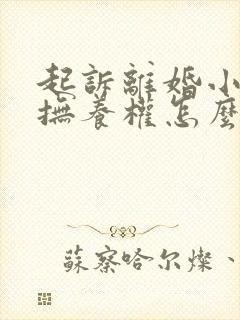 起訴離婚小
撫養權怎麼
蘇察哈尔燦、